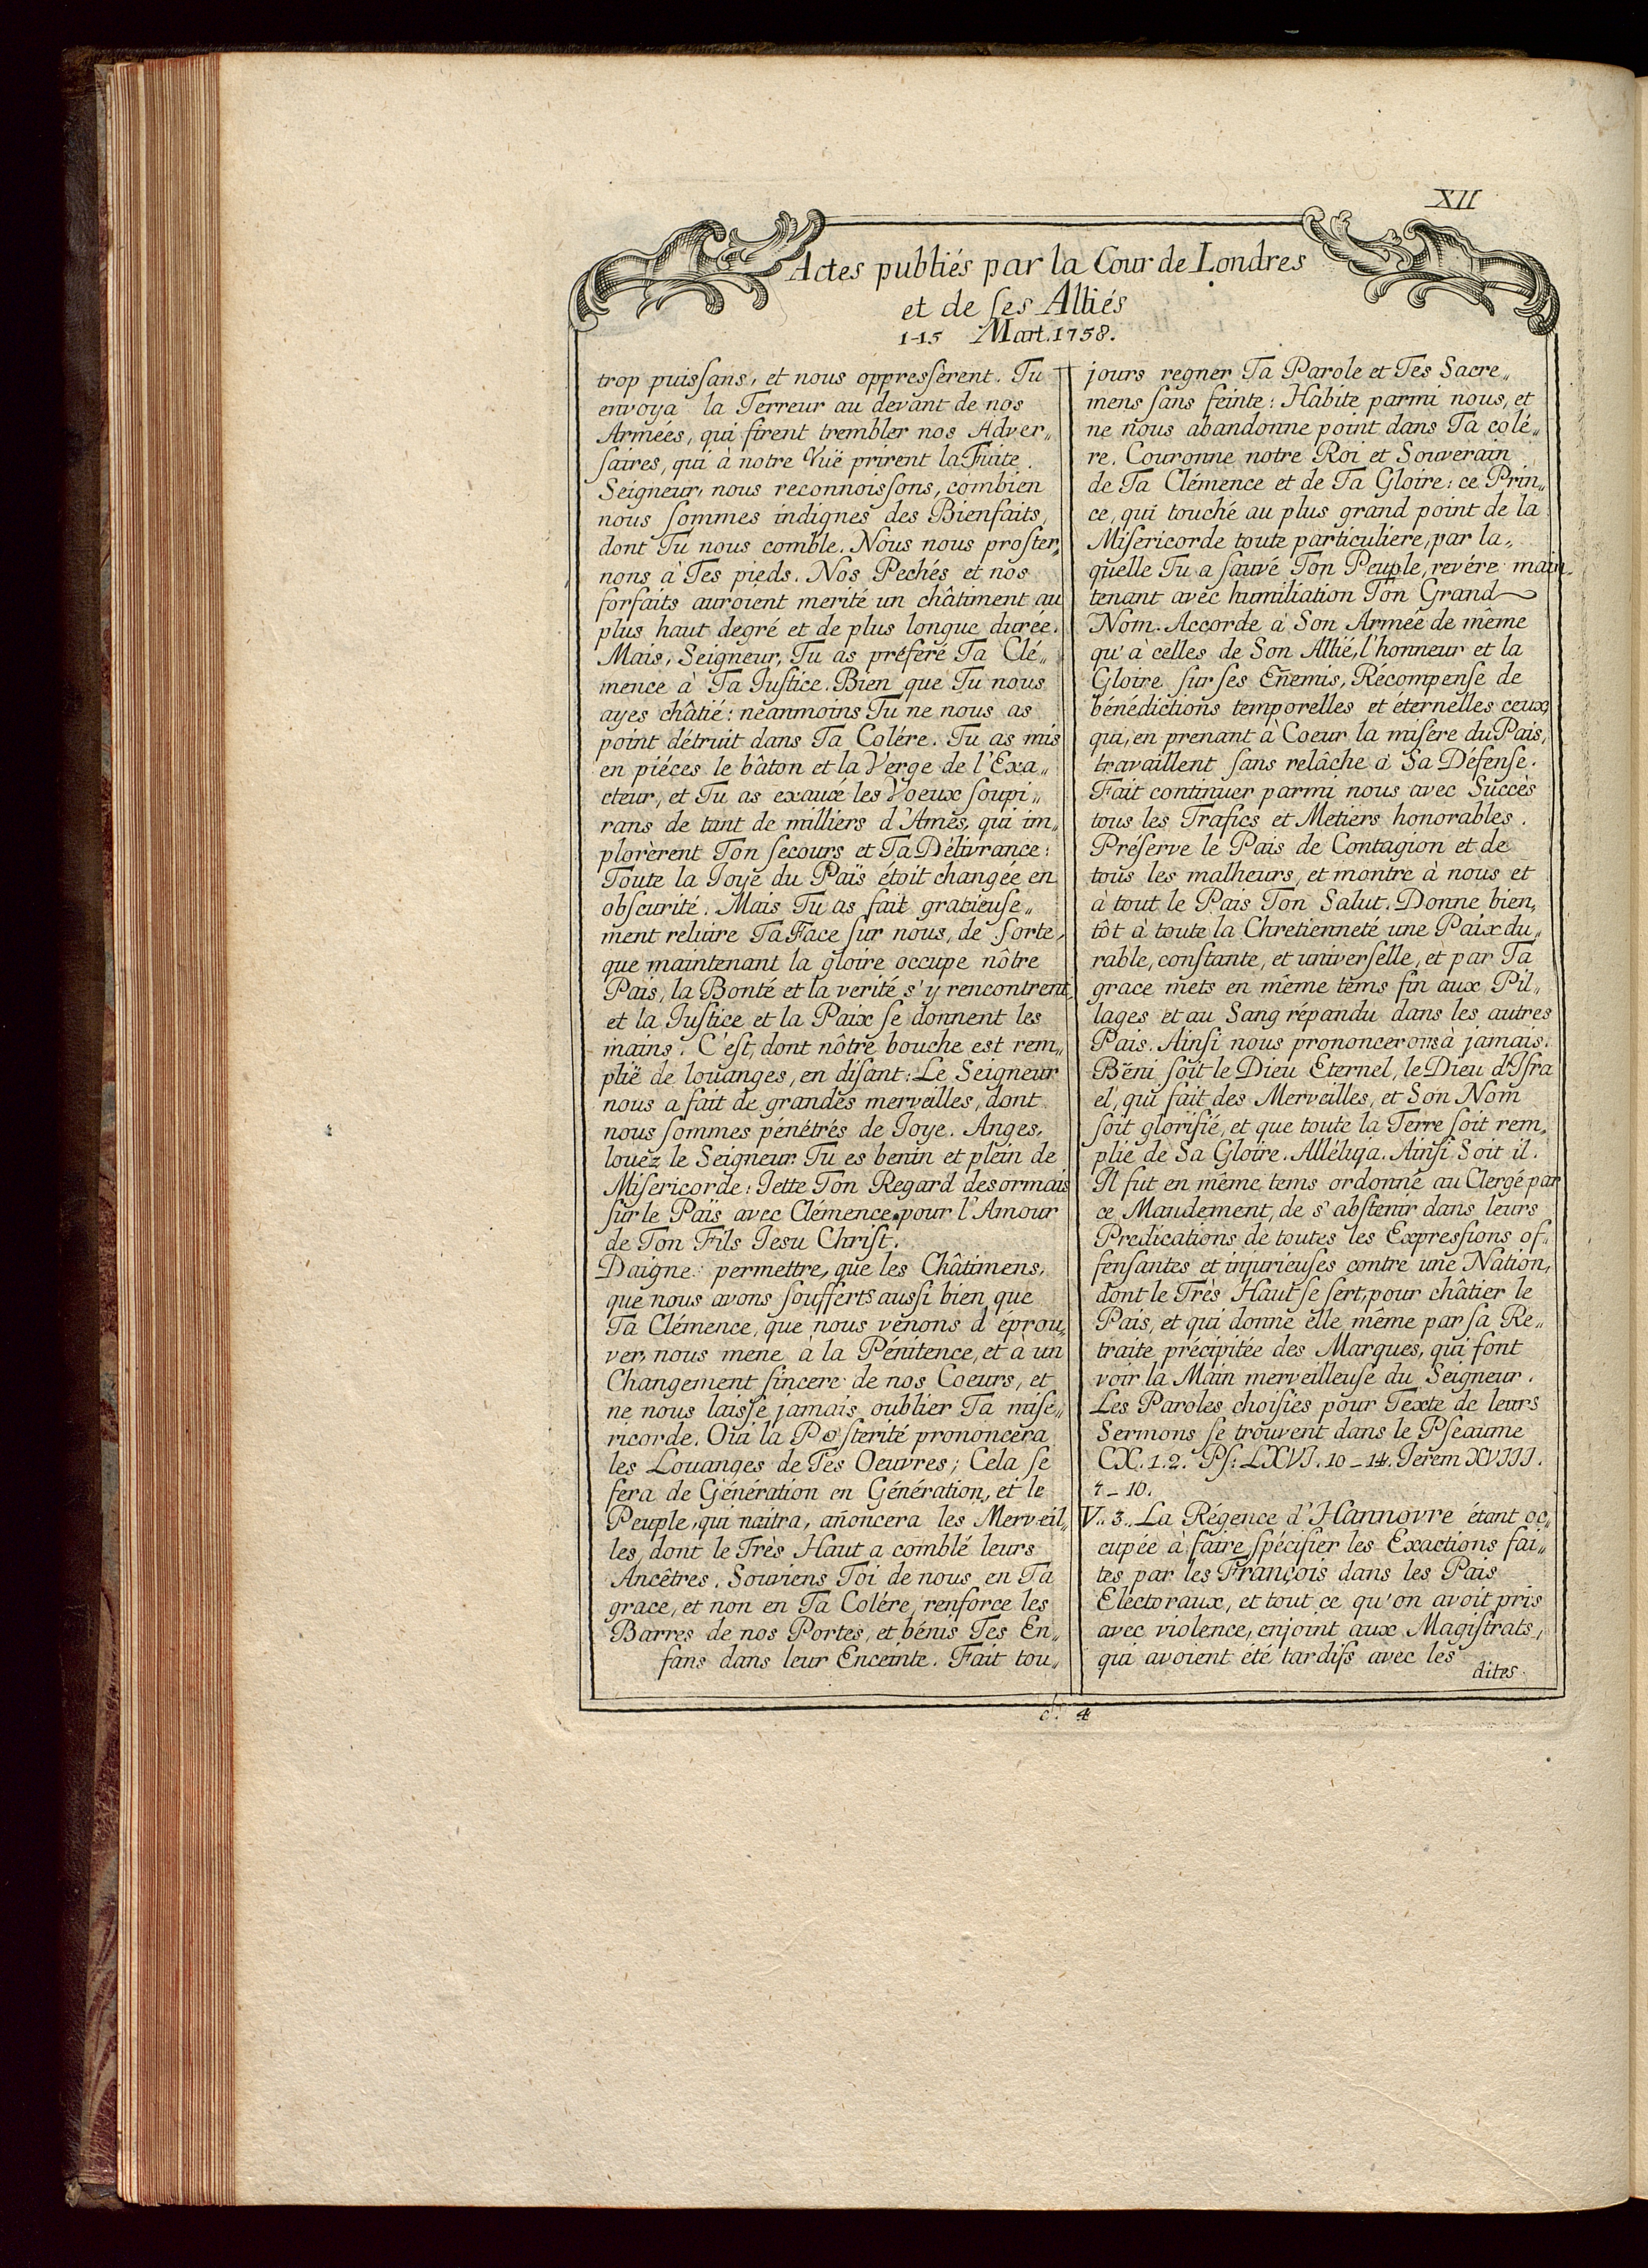 XII
Actes publiés par la Cour de Londres
et de ſes Alliés
1-15 Mart. 1758.
trop puiſsans, et nous oppreſsèrent. Tu
envoya la Terreur au devant de nos
Armées, qui firent trembler nos Adver„
ſaires, qui à notre Vuë prirent la Fuite.
Seigneur, nous reconnoiſsons, combien
nous ſommes indignes des Bienfaits,
dont Tu nous comble. Nous nous proſter„
nons à Tes pieds. Nos Pechés et nos
forfaits auroient merité un châtiment au
plus haut degré et de plus longue durée.
Mais, Seigneur, Tu as préferé Ta Clé„
mence à Ta Juſtice. Bien que Tu nous
ayes châtié: néanmoins Tu ne nous as
point détruit dans Ta Colére. Tu as mis
en piéces le bâton et la Verge de l'Exa„
cteur, et Tu as exaucé les Voeux ſoupi„
rans de tant de milliers d'Ames, qui im„
plorèrent Ton ſecours et Ta Délivrance:
Toute la Joye du Païs étoit changée en
obſcurité. Mais Tu as fait gratieuſe„
ment reluire Ta Face ſur nous, de ſorte,
que maintenant la gloire occupe nôtre
Pais, la Bonté et la verité s'y rencontrent,
et la Juſtice et la Paix ſe donnent les
mains. C'eſt, dont nôtre bouche est rem„
plië de louanges, en diſant: Le Seigneur
nous a fait de grandes merveilles, dont
nous ſommes pénétrés de Joye. Anges,
louëz le Seigneur. Tu es benin et plein de
Miſericorde: Jette Ton Regard desormais
ſur le Païs avec Clémence pour l'Amour
de Ton Fils Jesu Chriſt.
Daigne permettre, que les Châtimens,
que nous avons ſoufferts auſsi bien que
Ta Clémence, que nous venons d'éprou„
ver, nous mene à la Pénitence, et à un
Changement ſincere de nos Coeurs, et
ne nous laiſse jamais oublier Ta miſé„
ricorde. Oui la Poſterité prononcera
les Louanges de Tes Oeuvres; Cela ſe
fera de Génération en Génération, et le
Peuple, qui naitra, añoncera les Merveil„
les, dont le Très Haut a comblé leurs
Ancêtres. Souviens Toi de nous en Ta
grace, et non en Ta Colére, renforce les
Barres de nos Portes, et bénis Tes En„
fans dans leur Enceinte. Fait tou„
jours regner Ta Parole et Tes Sacre„
mens ſans feinte: Habite parmi nous, et
ne nous abandonne point dans Ta colé„
re. Couronne notre Roi et Souverain
de Ta Clémence et de Ta Gloire: ce Prin„
ce, qui touché au plus grand point de la
Miſericorde toute particuliere, par la„
quelle Tu a ſauvé Ton Peuple, revére main
tenant avec humiliation Ton Grand
Nom. Accorde à Son Armée de même
qu'à celles de Son Allié, l'honneur et la
Gloire ſur ſes Eñemis, Récompenſe de
bénédictions temporelles et éternelles ceux,
qui, en prenant à Coeur la miſére du Pais,
travaillent ſans relâche à Sa Défenſe.
Fait continuer parmi nous avec Succès
tous les Trafics et Metiers honorables.
Préſerve le Pais de Contagion et de
tous les malheurs, et montre à nous et
à tout le Pais Ton Salut. Donne bien„
tôt à toute la Chretienneté une Paix du„
rable, conſtante, et univerſelle, et par Ta
grace mets en même tems fin aux Pil„
lages et au Sang répandu dans les autres
Pais. Ainſi nous prononcerons à jamais:
Béni ſoit le Dieu Eternel, le Dieu d'Iſra
el, qui fait des Merveilles, et Son Nom
ſoit glorifié, et que toute la Terre ſoit rem„
plie de Sa Gloire. Alléluja. Ainſi Soit il.
Il fut en même tems ordonné au Clergé par
ce Mandement, de s'abſtenir dans leurs
Predications de toutes les Expreſsions of„
fenſantes et injurieuſes contre une Nation,
dont le Très Haut ſe ſert, pour châtier le
Pais, et qui donne elle même par ſa Re„
traite précipitée des Marques, qui font
voir la Main merveilleuſe du Seigneur.
Les Paroles choiſies pour Texte de leurs
Sermons ſe trouvent dans le Pſeaume
CX. 1.2. Pſ: LXVI. 10-14. Jerem XVIII.
7-10.
V. 3. La Régence d'Hannovre étant oc„
cupée à faire ſpécifier les Exactions fai„
tes par les François dans les Pais
Electoraux, et tout ce qu'on avoit pris
avec violence, enjoint aux Magiſtrats,
qui avoient été tardifs avec les
dites
4